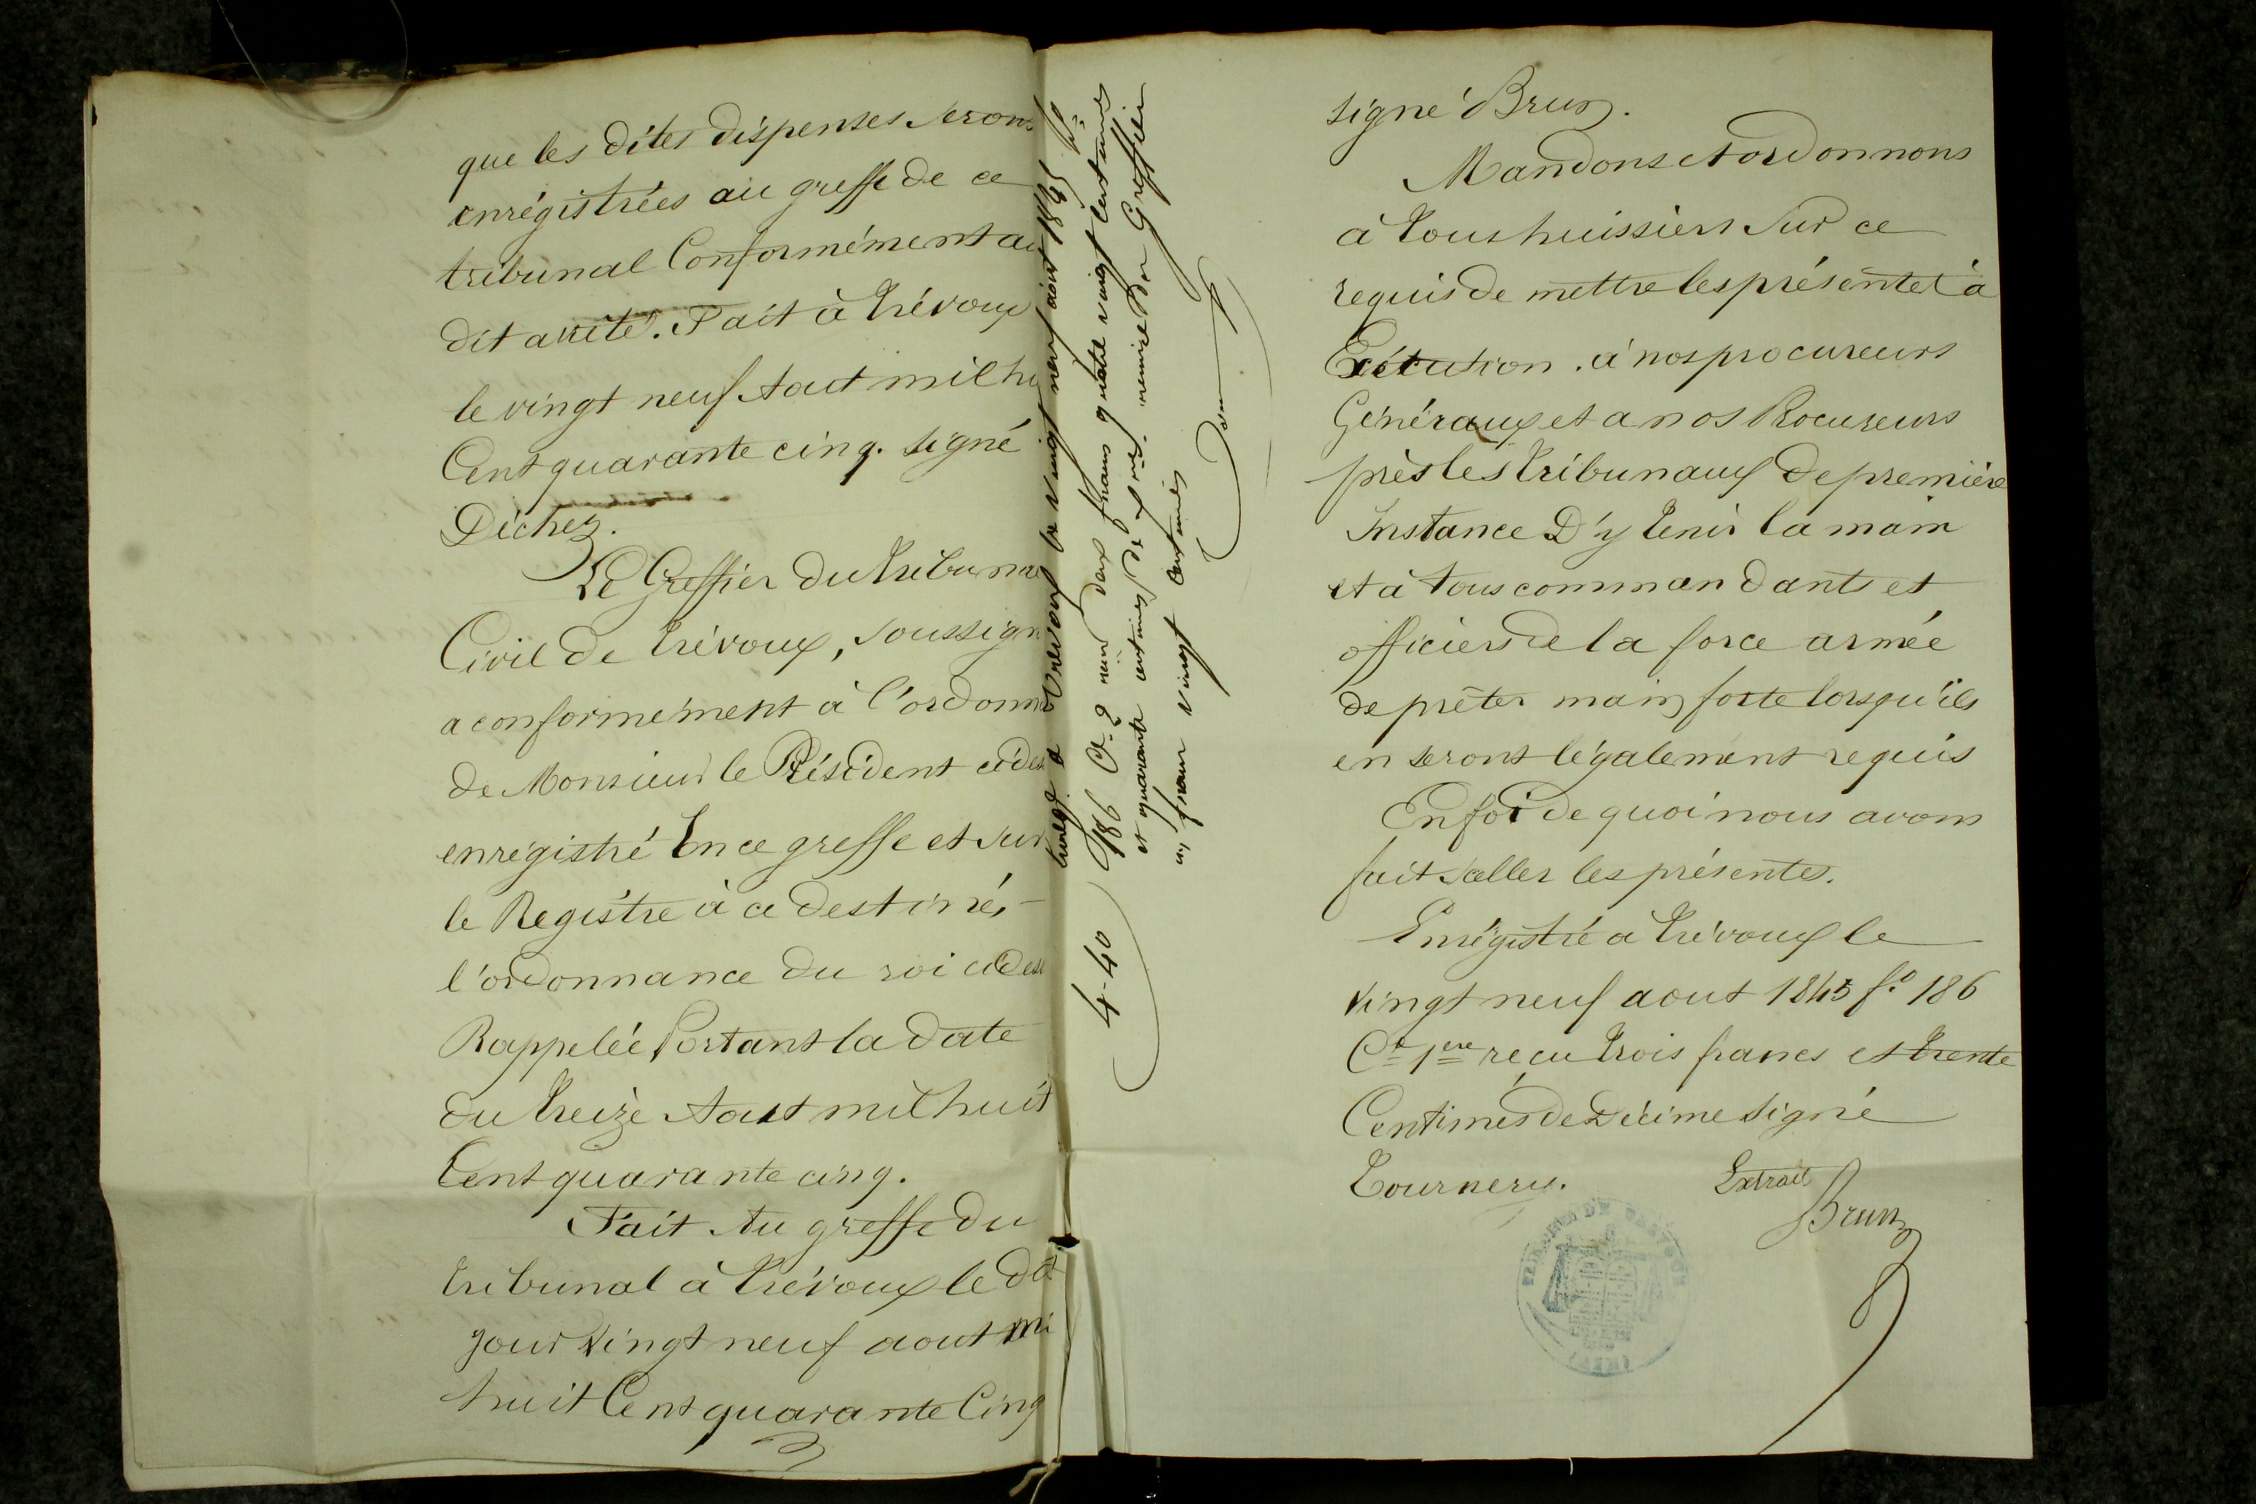 que les dites dispenses seront
enrégistrées au greffe de ce
tribunal Conformément au
dit arrêté. Fait à Trévoux
le vingt neuf Aout mil hu
Cent quarante cinq. signé
Déchez.
Le Greffier du Tribunal
Civil de Trévoux, soussign
a conformément à l'ordonn
de Monsieur le Président ci des
enregistré En ce greffe et sur
le Registre à ce destiné,
l'ordonnance du roi ci dess
Rappelée Portant la date
du treize Aout mil huit
Cent quarante cinq.
Fait Au greffe du
tribunal à Trévoux le dit
jour vingt neuf aout mi
huit Cent quarante Cinq
Enreg. à Trévoux le vingt neuf août 1845 f°
186 C. 2 deux francs quatre vingt centimes
et quarante centimes de remise Greffier
un franc vingt centimes
4-40
signé Brun.
Mandons et ordonnons
à tous huissiers sur ce
requis de mettre les présentes à
Exécution. à nos procureurs
Généraux et a nos Procureurs
près les tribunaux de première
Instance D'y tenir la main
et à tous commandants et
officiers de la force armée
de prêter main forte lorsqu'ils
en seront légalement requis
En foi de quoi nous avons
fait sceller les présentes.
Enrégistré à Trévoux le
vingt neuf aout 1845 f.° 186
C.e 1ere reçu trois francs et trente
Centimes de Décime signé
Tournery.
Extrait
Brun